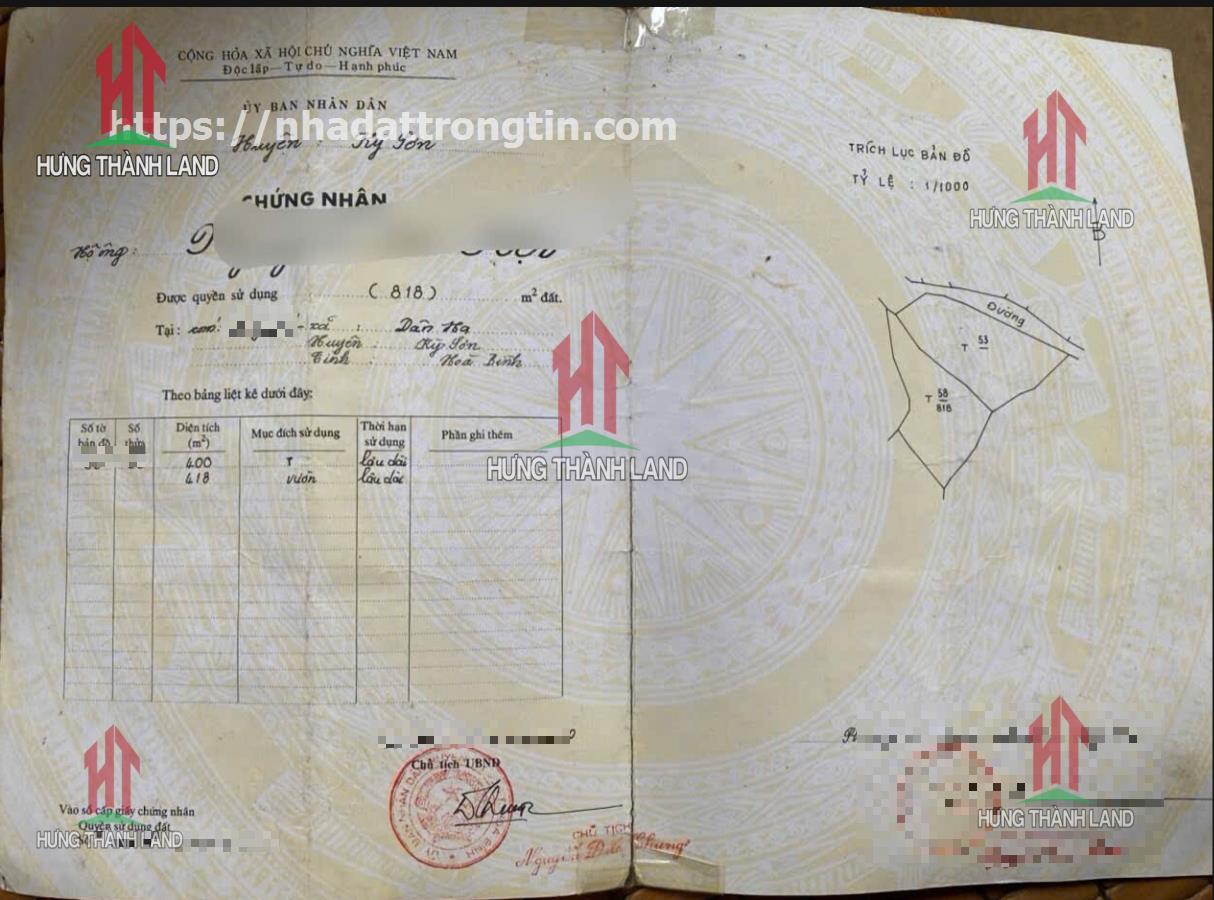 CỘNG HÒA XÃ HỘI CHỦ NGHĨA VIỆT NAM
Độc lập — Tự do — Hạnh phúc
ỦY BAN NHÂN DÂN
https://nhadattrongtin.com
Huyện : Kỳ Sơn
HƯNG THÀNH LAND
CHỨNG NHẬN
Hộ ông :
Được quyền sử dụng (818) m² đất.
Tại : xã : Dân Hạ
Huyện : Kỳ Sơn
Tỉnh : Hoà Bình
Theo bảng liệt kê dưới đây:
Số tờ bản đồ Số thửa Diện tích (m²) Mục đích sử dụng Thời hạn sử dụng Phần ghi thêm
400 T lâu dài
418 vườn lâu dài
HƯNG THÀNH LAND
Chủ tịch UBND
Vào sổ cấp giấy chứng nhận
Quyền sử dụng đất
HƯNG THÀNH LAND
CHỦ TỊCH
Nguyễn Đức Chung
TRÍCH LỤC BẢN ĐỒ
TỶ LỆ : 1/1000
HƯNG THÀNH LAND
B
Đường
T 53
T 58
818
HƯNG THÀNH LAND